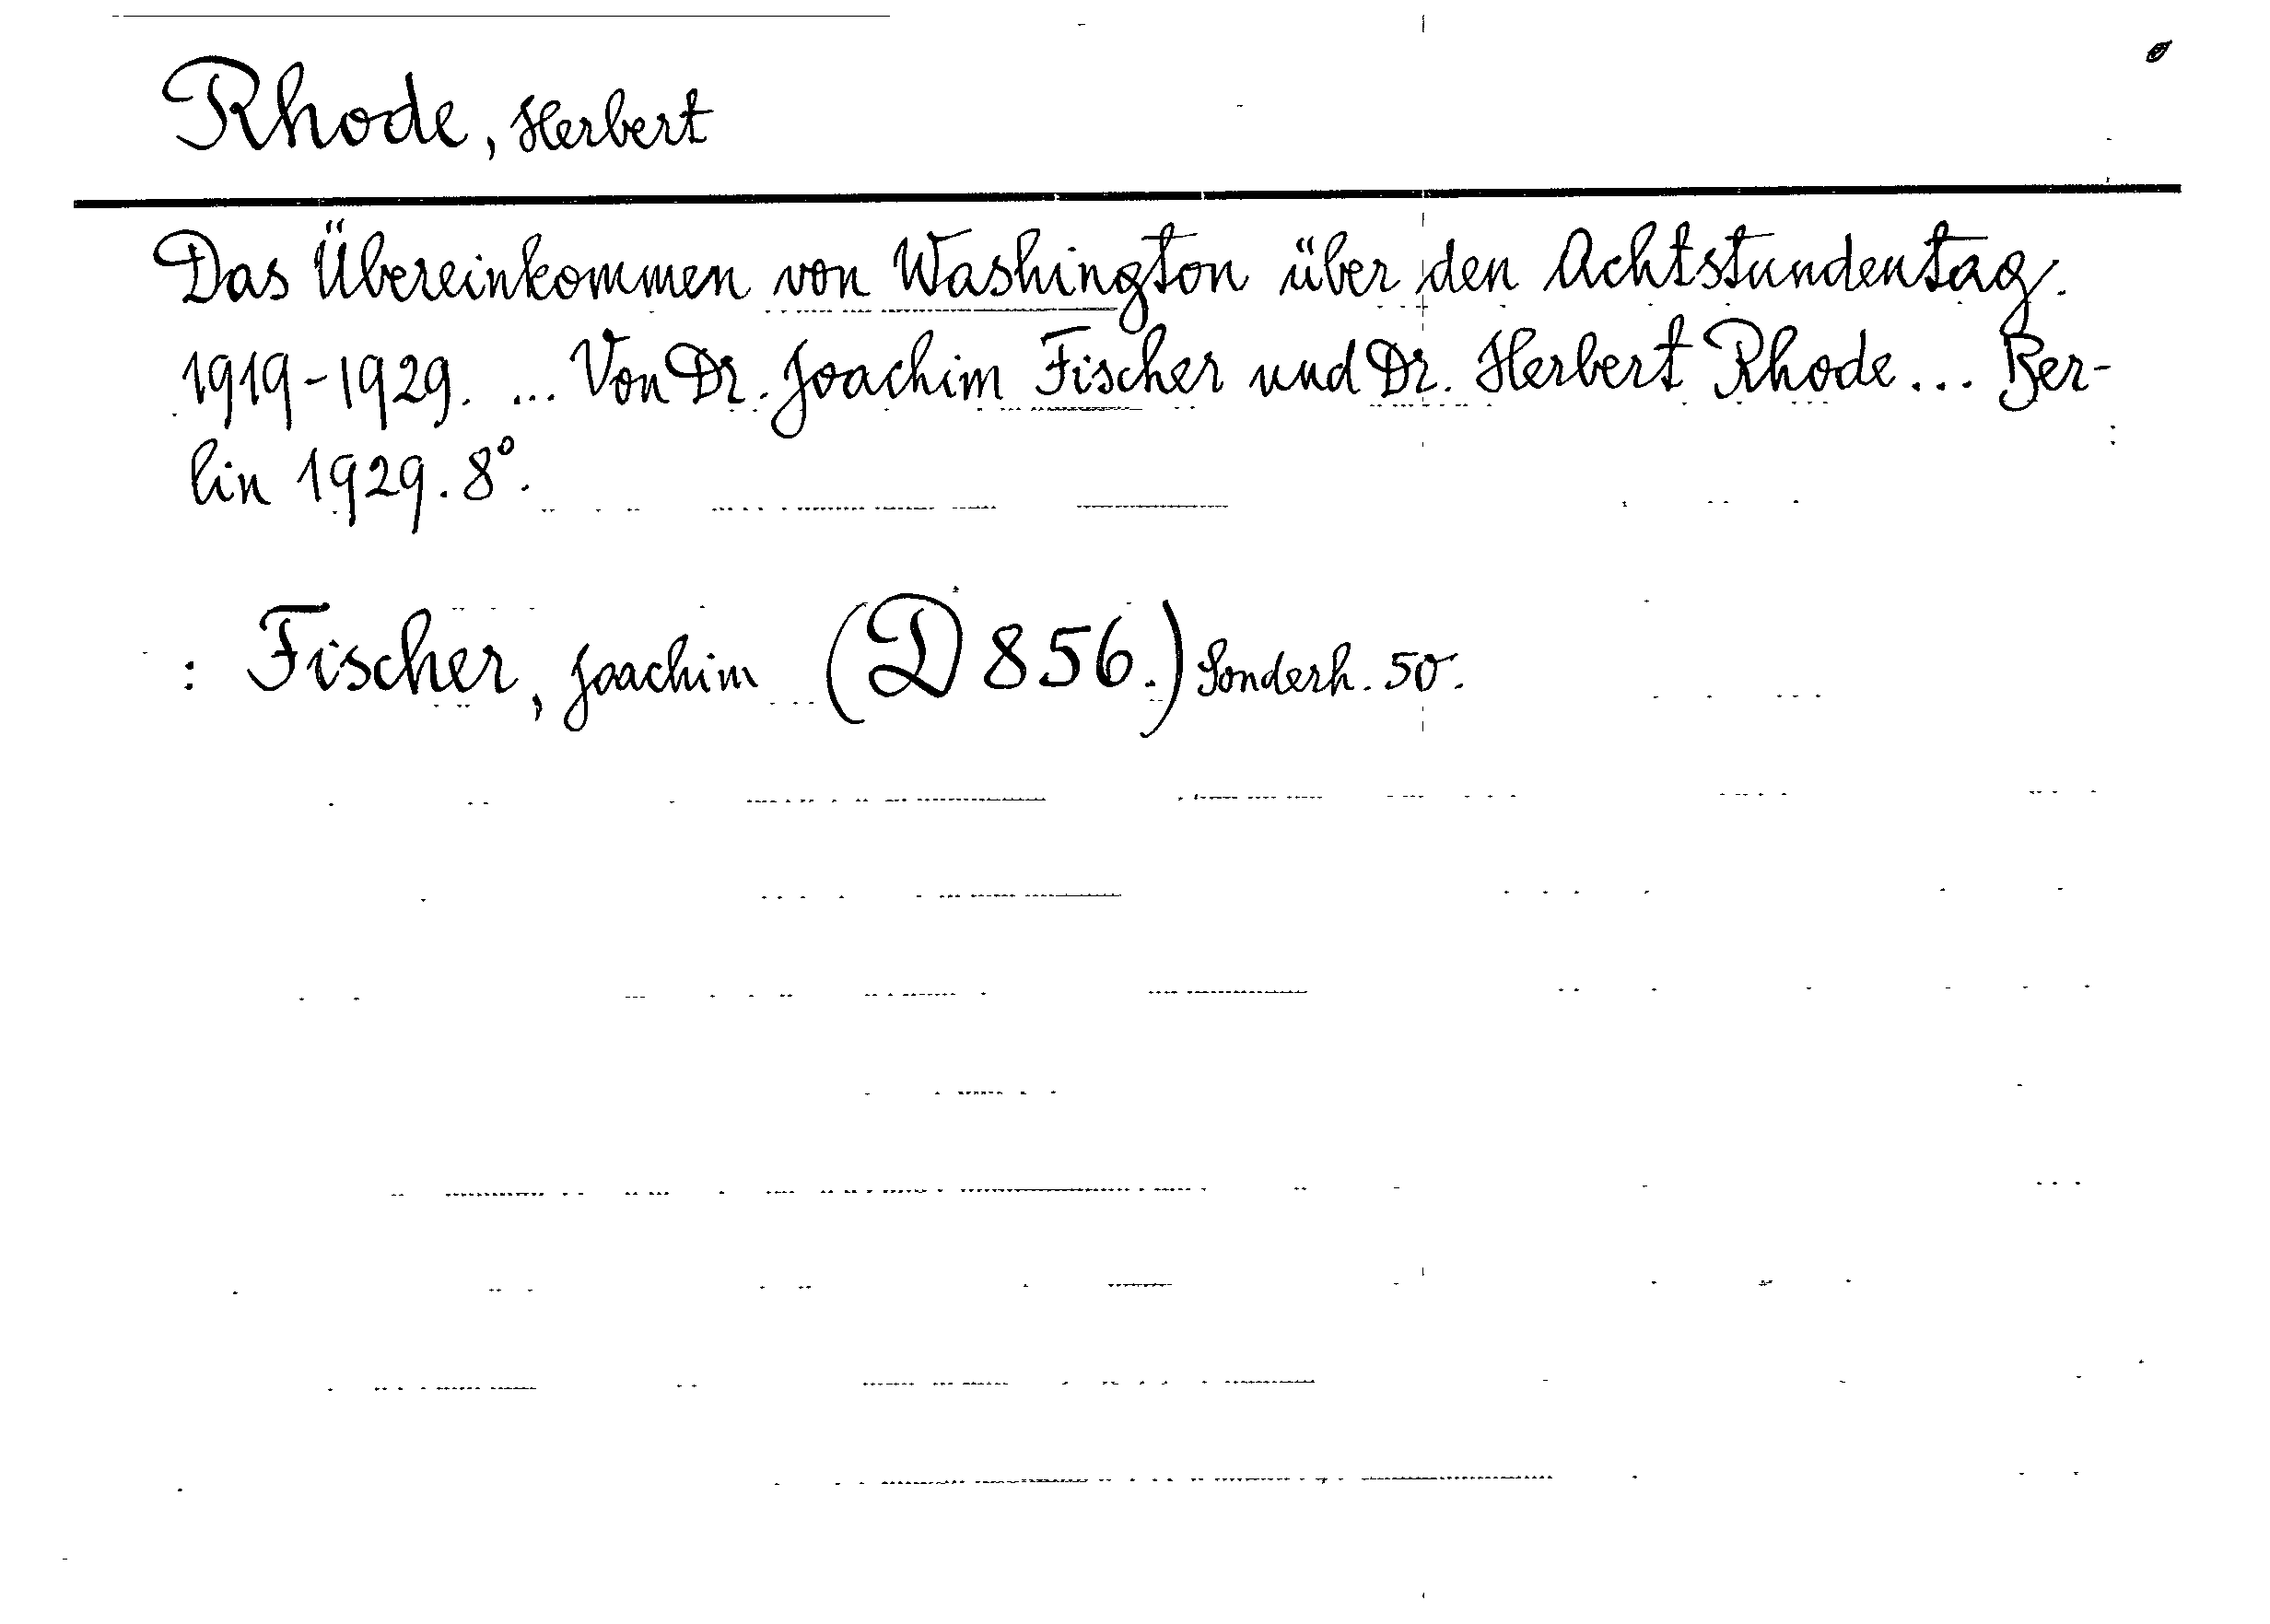 Rhode, Herbert
Das Übereinkommen von Washington über den Achtstundentag.
1919-1929. ... Von Dr. Joachim Fischer und Dr. Herbert Rhode ... Ber-
lin 1929. 8°.
: Fischer, Joachim (D 856.) Sonderh. 50.